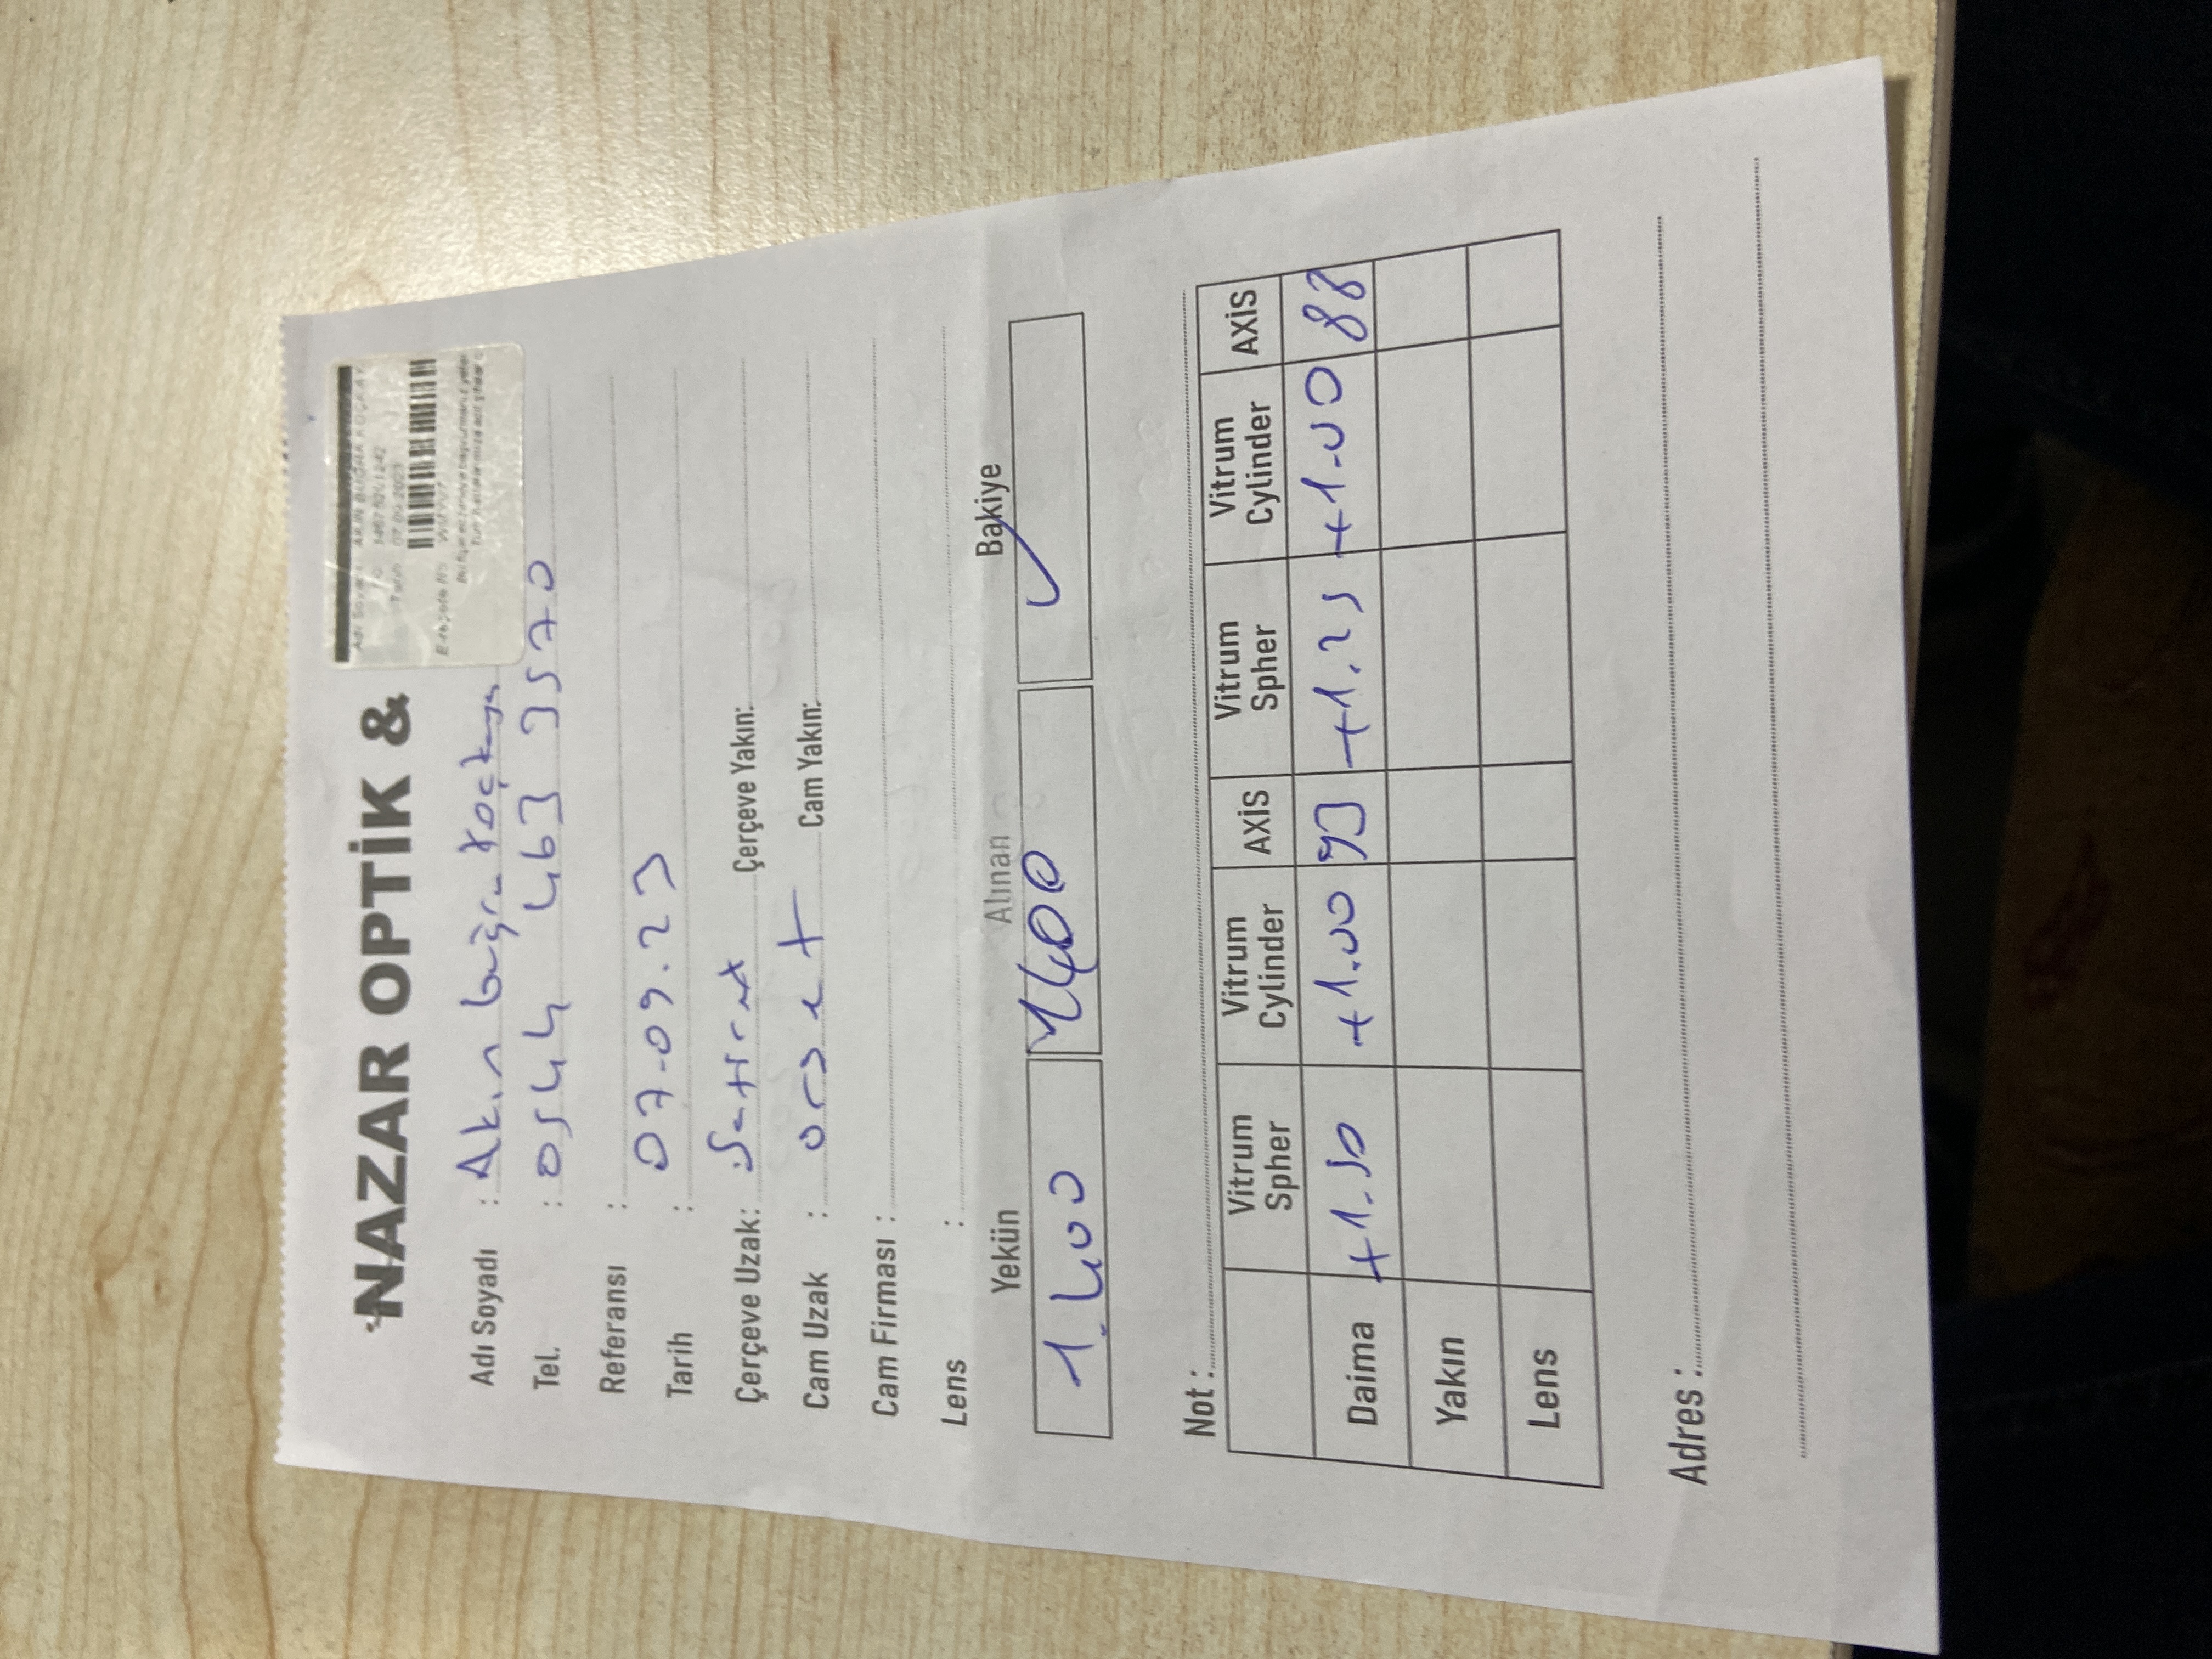 NAZAR OPTİK &
Adı Soyadı : AKIN BUĞRA KOÇKAY
Tarih 07.09.2023
E-reçete No
Adı Soyadı : Akın Buğra Koçkaya
Tel. : 0544 463 3570
Referansı :
Tarih : 07.09.23
Çerçeve Uzak: Çerçeve Yakın:
Cam Uzak : Cam Yakın:
Cam Firması :
Lens :
Yekün Alınan Bakiye
1.400 1400 ✓
Not :
Vitrum Spher Vitrum Cylinder AXİS Vitrum Spher Vitrum Cylinder AXİS
Daima +1.50 +1.00 93 +1.25 +1.00 88
Yakın
Lens
Adres :